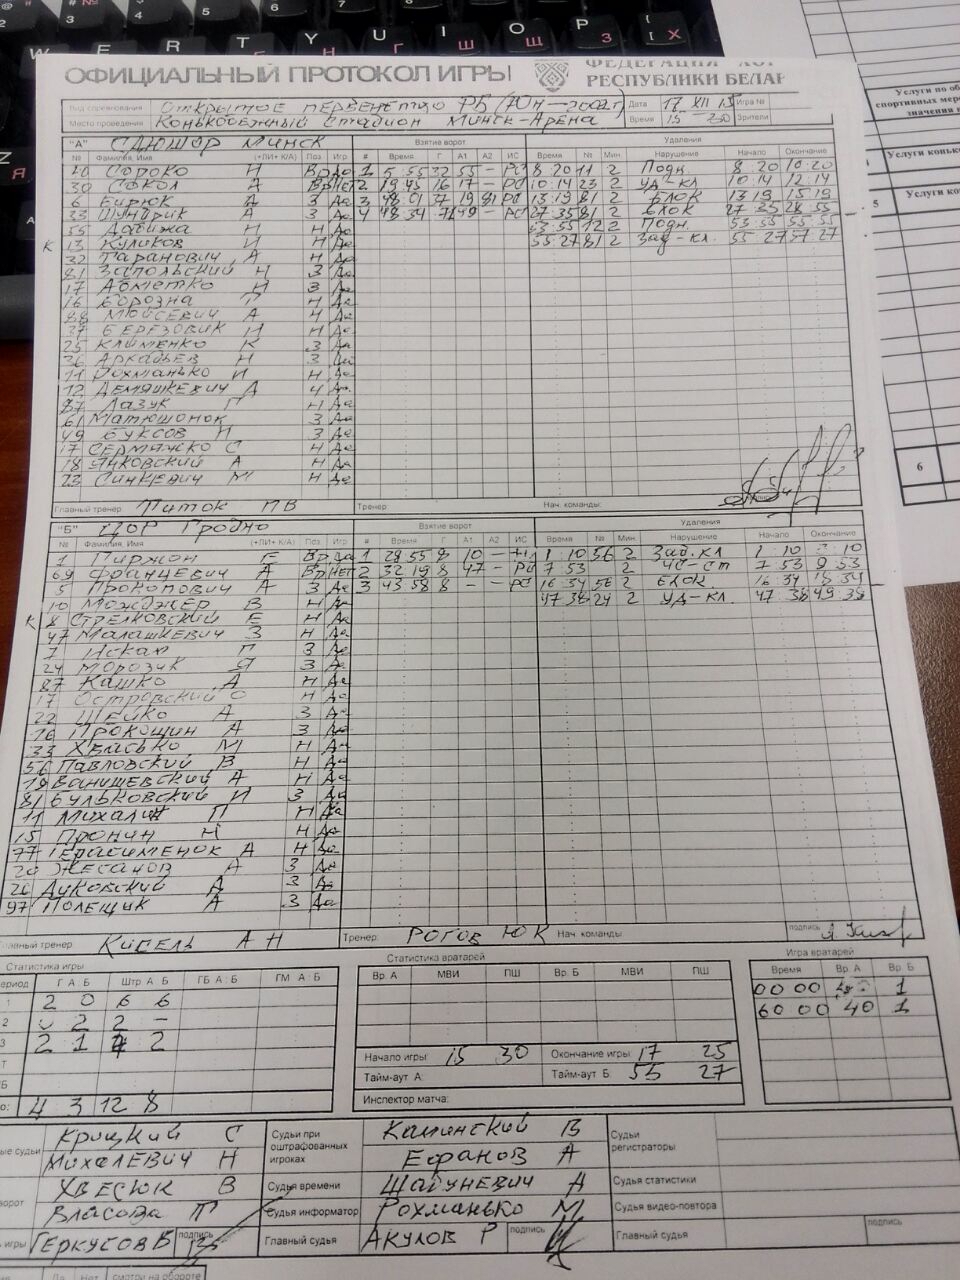 ОФИЦИАЛЬНЫЙ ПРОТОКОЛ ИГРЫ
РЕСПУБЛИКИ БЕЛАР
Вид соревнования Открытое первенство РБ (Юн-2002) Дата 17 XII 15 Игра №
Место проведения Конькобежный стадион Минск-Арена Время 15 30 Зрители
"А" СДЮШОР Минск Взятие ворот Удаления
№ Фамилия, Имя (+ЛИ+ К/А) Поз Игр # Время Г А1 А2 ИС Время № Мин. Нарушение Начало Окончание
40 Сороко И Вр Да 1 5 55 32 55 - РС 8 20 11 2 Подн. 8 20 10 20
30 Сокол А Вр Нет 2 19 45 16 17 - РС 10 14 23 2 Уд-кл 10 14 12 14
6 Бирюк А З Да 3 48 01 37 19 81 РС 13 19 81 2 Блок 13 19 15 19
33 Шундрик А З Да 4 48 34 49 - РС 27 35 81 2 Блок 27 35
55 Адвижа Н Н Да 53 55 12 2 Подн. 53 55 55 55
К 13 Куликов И Н Да 55 27 81 2 Зад-кл. 55 27 57 27
32 Таранович А Н Да
81 Запольский Н З Да
17 Аблетко Н З Да
16 Борозна П Н Да
88 Мойсевич А Н Да
37 Березовик И Н Да
25 Клименко К З Да
36 Аркадьев Н З Да
11 Рохманько И Н Да
12 Демяшкевич А Н Да
87 Лазук П Н Да
61 Матюшонок З Да
49 Буксов И З Да
17 Сермяжко С Н Да
18 Янковский А Н Да
23 Синкевич М Н Да
Главный тренер Питок ПВ Тренер Нач. команды:
"Б" ЦОР Гродно Взятие ворот Удаления
№ Фамилия, Имя (+ЛИ+ К/А) Поз Игр # Время Г А1 А2 ИС Время № Мин. Нарушение Начало Окончание
1 Пиржон Е Вр Да 1 28 55 8 10 - +1 1 10 56 2 Зад.кл 1 10 3 10
69 Францевич А Вр Нет 2 32 19 8 47 - РС 7 53 2 ЧС-ст 7 53 9 53
5 Прокопович А З Да 3 43 58 8 - - РС 16 34 56 2 Блок. 16 34 18 34
10 Можджер В Н Да 47 38 24 2 Уд-кл. 47 38 49 38
К 8 Стрелковский Е Н Да
47 Малашкевич З Н Да
7 Искат П З Да
24 Морозик Я З Да
87 Кашко А Н Да
17 Островский О Н Да
22 Шейко А З Да
76 Прокошин А З Да
33 Хвасько М Н Да
56 Павловский В Н Да
19 Ванишевский А Н Да
81 Бульковский И З Да
11 Михалик П Н Да
15 Пронин Н Н Да
77 Герасименок А Н Да
20 Жесанов А З Да
26 Диковский А З Да
97 Полещик А З Да
Главный тренер Кисель АН Тренер: Рогов ЮК Нач. команды: подпись
Статистика игры Статистика вратарей Игра вратарей
ериод Г А Б Штр А Б ГБ А Б ГМ А Б Вр. А МВИ ПШ Вр. Б МВИ ПШ Время Вр. А Вр. Б
1 2 0 6 6 00 00 1
2 2 2 - 60 00 40 1
3 2 1 4 2
Начало игры: 15 30 Окончание игры 17 25
Тайм-аут А: Тайм-аут Б: 55 27
о: 4 3 12 8 Инспектор матча:
ые судьи Крицкий С Судьи при оштрафованных игроках Каминский В Судьи регистраторы
Михалевич Н Ефанов А
ворот Хвесюк В Судья времени Шадуневич А Судья статистики
Власова П Судья информатор Рохманько М Судья видео-повтора
игры Геркусов В подпись Главный судья Акулов Р подпись Главный судья подпись
Да Нет смотри на обороте
Услуги по об
спортивных мерог
значения
Услуги конько
5 Услуги ко
6